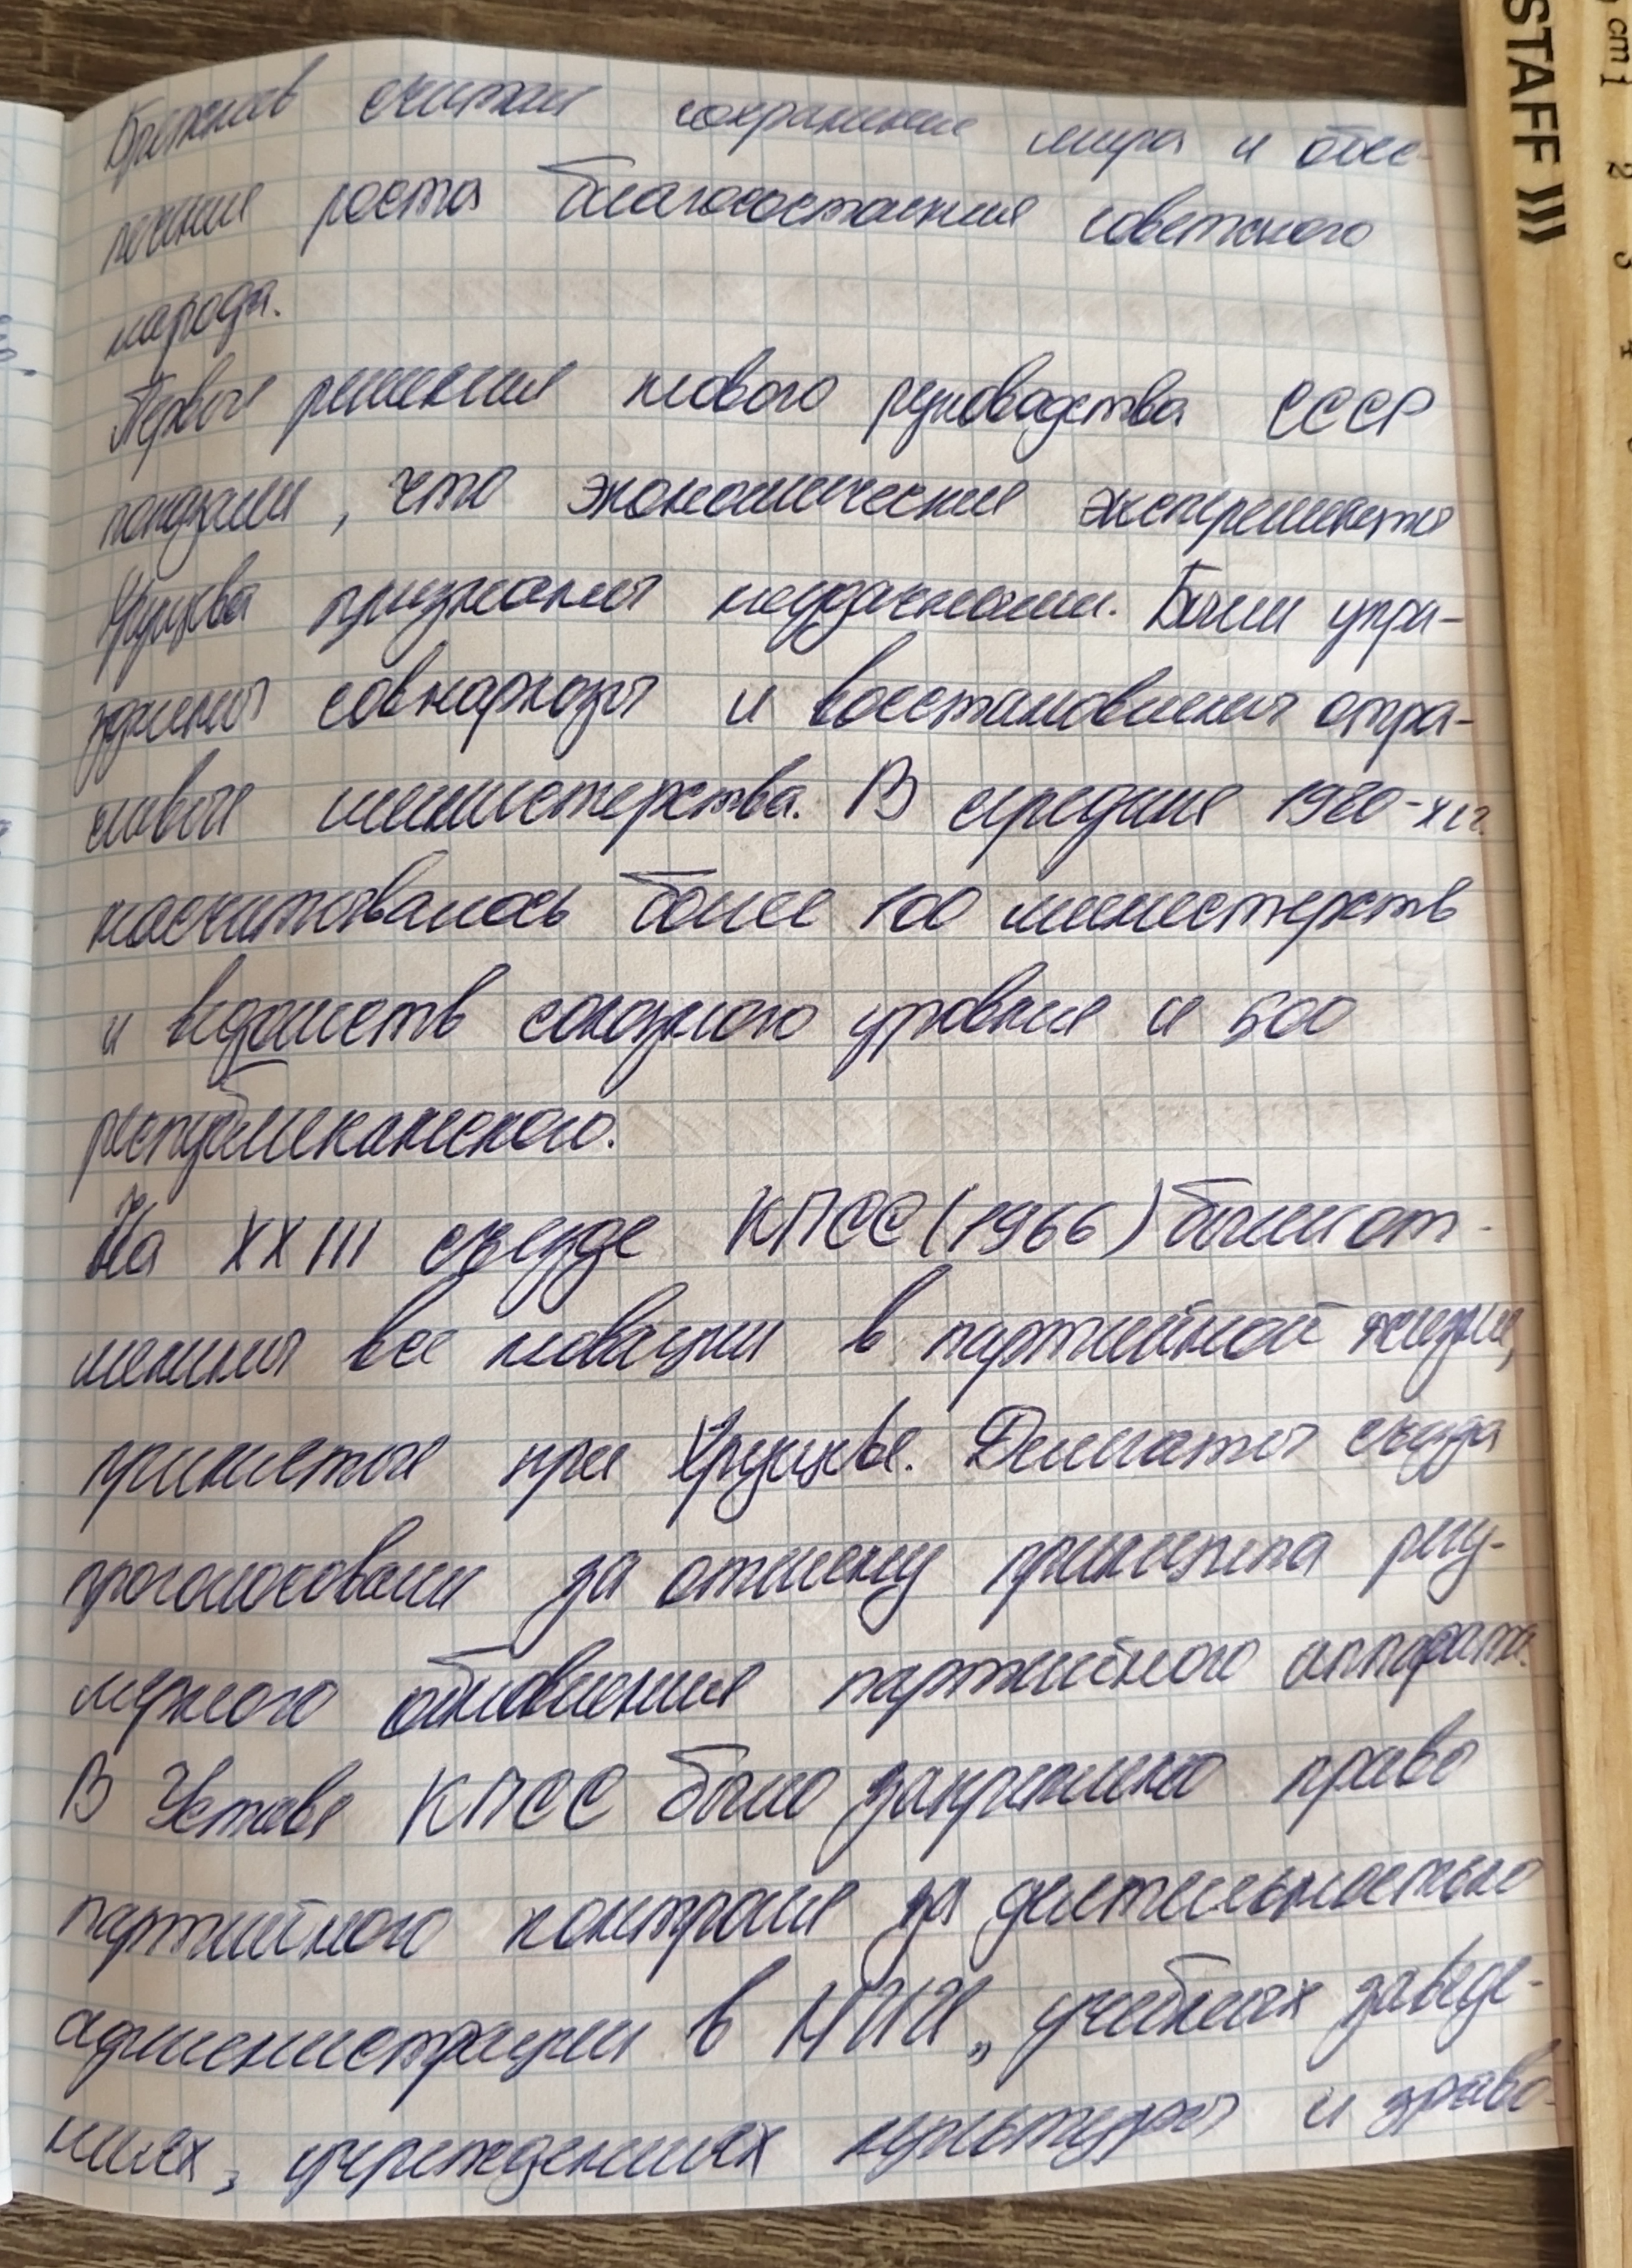 Брежнев считал сохранение мира и обес-
печения роста благосостояния советского
народа.
Первые решения нового руководства СССР
показали, что экономические эксперименты
Хрущёва признаны неудачными. Были упра-
зднены совнархозы и восстановлены отра-
слевые министерства. В середине 1980-х гг.
насчитывалось более 100 министерств
и ведомств союзного уровня и 500
республиканского.
На XXIII съезде КПСС (1966) были от-
менены все новации в партийной жизни,
принятые при Хрущёве. Делегаты съезда
проголосовали за отмену принципа регу-
лярного обновления партийного аппарата.
В Уставе КПСС было закреплено право
партийного контроля за деятельностью
администрации в НИИ,, учебных заведе-
ниях, учреждениях культуры и здраво-
STAFF
cm 1
2
3
4